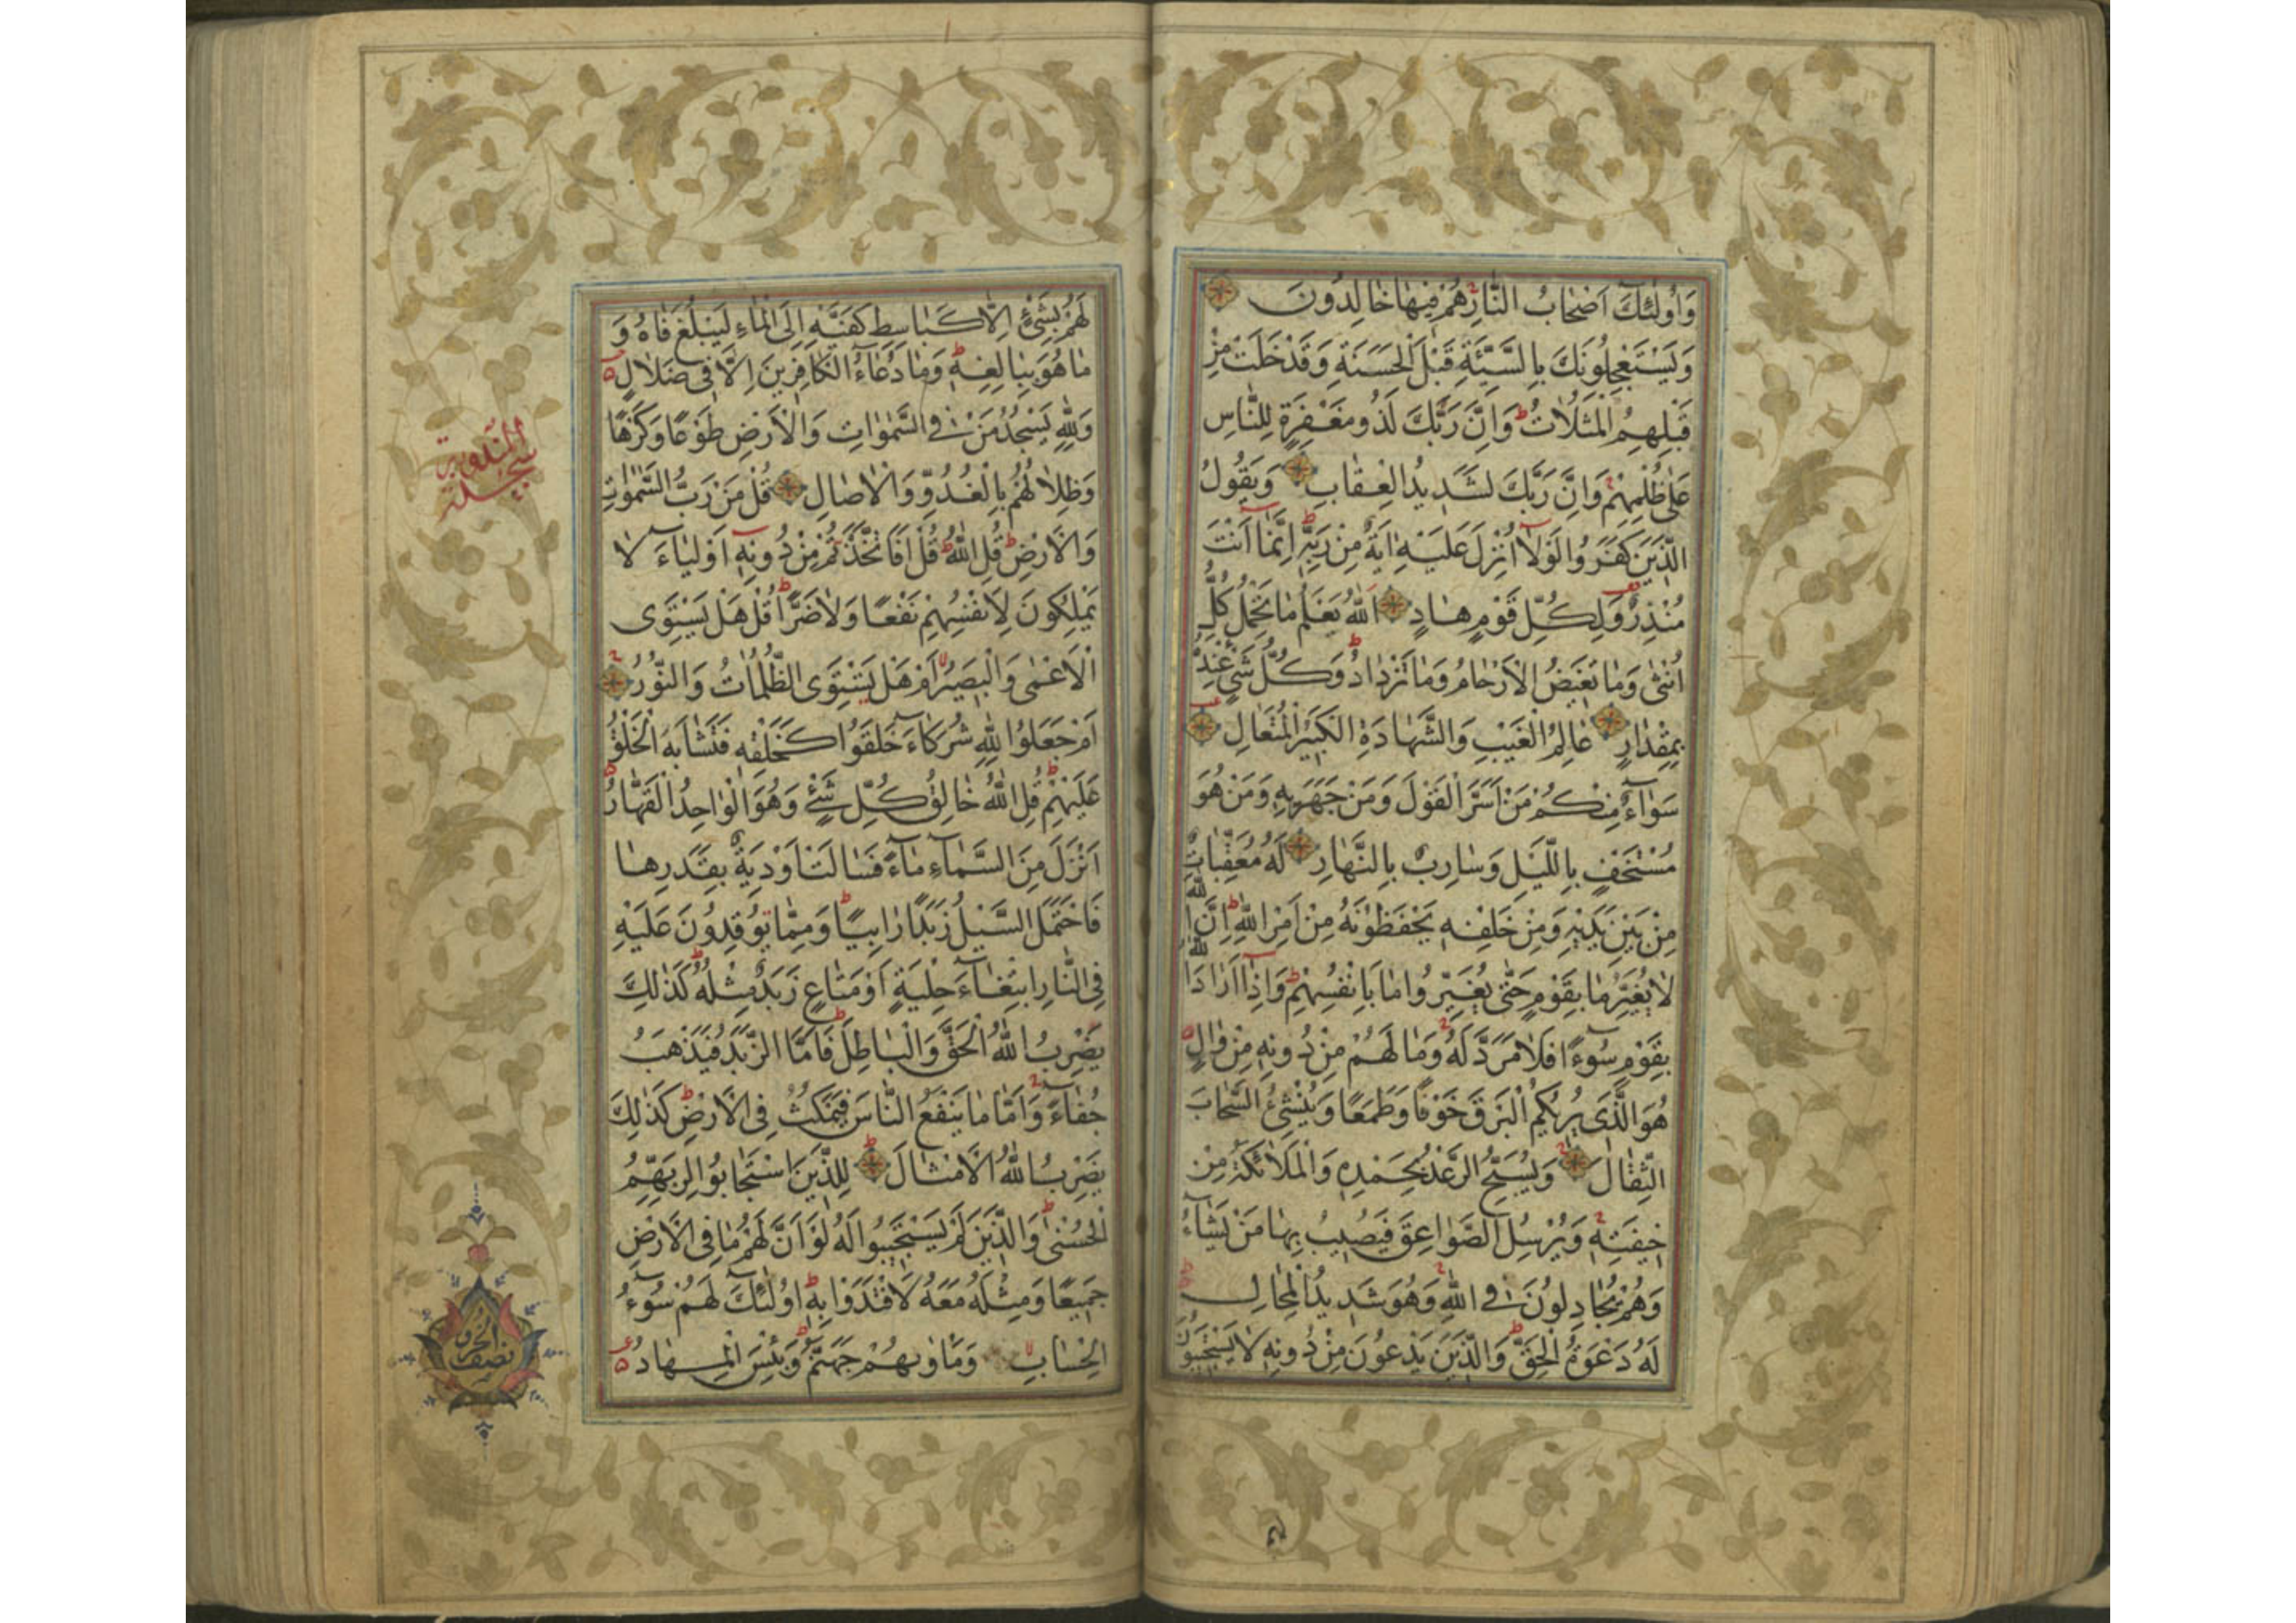 وَاُولٰئِكَ اَصْحَابُ النَّارِ هُمْ فِيهَا خَالِدُونَ
وَيَسْتَعْجِلُونَكَ بِالسَّيِّئَةِ قَبْلَ الْحَسَنَةِ وَقَدْ خَلَتْ مِنْ
قَبْلِهِمُ الْمَثُلَاتُ ط وَاِنَّ رَبَّكَ لَذُو مَغْفِرَةٍ لِلنَّاسِ
عَلٰى ظُلْمِهِمْ وَاِنَّ رَبَّكَ لَشَدِيدُ الْعِقَابِ وَيَقُولُ
الَّذِينَ كَفَرُوا لَوْلَا اُنْزِلَ عَلَيْهِ اٰيَةٌ مِنْ رَبِّهِ ط اِنَّمَا اَنْتَ
مُنْذِرٌ وَلِكُلِّ قَوْمٍ هَادٍ اَللّٰهُ يَعْلَمُ مَا تَحْمِلُ كُلُّ
اُنْثٰى وَمَا تَغِيضُ الْاَرْحَامُ وَمَا تَزْدَادُ ط وَكُلُّ شَيْءٍ عِنْدَهُ
بِمِقْدَارٍ عَالِمُ الْغَيْبِ وَالشَّهَادَةِ الْكَبِيرُ الْمُتَعَالِ
سَوَاءٌ مِنْكُمْ مَنْ اَسَرَّ الْقَوْلَ وَمَنْ جَهَرَ بِهِ وَمَنْ هُوَ
مُسْتَخْفٍ بِاللَّيْلِ وَسَارِبٌ بِالنَّهَارِ لَهُ مُعَقِّبَاتٌ
مِنْ بَيْنِ يَدَيْهِ وَمِنْ خَلْفِهِ يَحْفَظُونَهُ مِنْ اَمْرِ اللّٰهِ ط اِنَّ اللّٰهَ
لَا يُغَيِّرُ مَا بِقَوْمٍ حَتّٰى يُغَيِّرُوا مَا بِاَنْفُسِهِمْ ط وَاِذَا اَرَادَ اللّٰهُ
بِقَوْمٍ سُوءًا فَلَا مَرَدَّ لَهُ وَمَا لَهُمْ مِنْ دُونِهِ مِنْ وَالٍ
هُوَ الَّذِي يُرِيكُمُ الْبَرْقَ خَوْفًا وَطَمَعًا وَيُنْشِئُ السَّحَابَ
الثِّقَالَ وَيُسَبِّحُ الرَّعْدُ بِحَمْدِهِ وَالْمَلَائِكَةُ مِنْ
خِيفَتِهِ وَيُرْسِلُ الصَّوَاعِقَ فَيُصِيبُ بِهَا مَنْ يَشَاءُ
وَهُمْ يُجَادِلُونَ فِي اللّٰهِ وَهُوَ شَدِيدُ الْمِحَالِ
لَهُ دَعْوَةُ الْحَقِّ ط وَالَّذِينَ يَدْعُونَ مِنْ دُونِهِ لَا يَسْتَجِيبُونَ
لَهُمْ بِشَيْءٍ اِلَّا كَبَاسِطِ كَفَّيْهِ اِلَى الْمَاءِ لِيَبْلُغَ فَاهُ وَ
مَا هُوَ بِبَالِغِهِ ط وَمَا دُعَاءُ الْكَافِرِينَ اِلَّا فِي ضَلَالٍ
وَلِلّٰهِ يَسْجُدُ مَنْ فِي السَّمٰوَاتِ وَالْاَرْضِ طَوْعًا وَكَرْهًا
وَظِلَالُهُمْ بِالْغُدُوِّ وَالْاٰصَالِ قُلْ مَنْ رَبُّ السَّمٰوَاتِ
وَالْاَرْضِ ط قُلِ اللّٰهُ ط قُلْ اَفَاتَّخَذْتُمْ مِنْ دُونِهِ اَوْلِيَاءَ لَا
يَمْلِكُونَ لِاَنْفُسِهِمْ نَفْعًا وَلَا ضَرًّا ط قُلْ هَلْ يَسْتَوِى
الْاَعْمٰى وَالْبَصِيرُ اَمْ هَلْ تَسْتَوِى الظُّلُمَاتُ وَالنُّورُ
اَمْ جَعَلُوا لِلّٰهِ شُرَكَاءَ خَلَقُوا كَخَلْقِهِ فَتَشَابَهَ الْخَلْقُ
عَلَيْهِمْ ط قُلِ اللّٰهُ خَالِقُ كُلِّ شَيْءٍ وَهُوَ الْوَاحِدُ الْقَهَّارُ
اَنْزَلَ مِنَ السَّمَاءِ مَاءً فَسَالَتْ اَوْدِيَةٌ بِقَدَرِهَا
فَاحْتَمَلَ السَّيْلُ زَبَدًا رَابِيًا ط وَمِمَّا يُوقِدُونَ عَلَيْهِ
فِي النَّارِ ابْتِغَاءَ حِلْيَةٍ اَوْ مَتَاعٍ زَبَدٌ مِثْلُهُ ط كَذٰلِكَ
يَضْرِبُ اللّٰهُ الْحَقَّ وَالْبَاطِلَ ط فَاَمَّا الزَّبَدُ فَيَذْهَبُ
جُفَاءً وَاَمَّا مَا يَنْفَعُ النَّاسَ فَيَمْكُثُ فِي الْاَرْضِ ط كَذٰلِكَ
يَضْرِبُ اللّٰهُ الْاَمْثَالَ ط لِلَّذِينَ اسْتَجَابُوا لِرَبِّهِمُ
الْحُسْنٰى ط وَالَّذِينَ لَمْ يَسْتَجِيبُوا لَهُ لَوْ اَنَّ لَهُمْ مَا فِي الْاَرْضِ
جَمِيعًا وَمِثْلَهُ مَعَهُ لَافْتَدَوْا بِهِ ط اُولٰئِكَ لَهُمْ سُوءُ
الْحِسَابِ وَمَاْوٰيهُمْ جَهَنَّمُ ط وَبِئْسَ الْمِهَادُ
سجدة
نصف الحزب